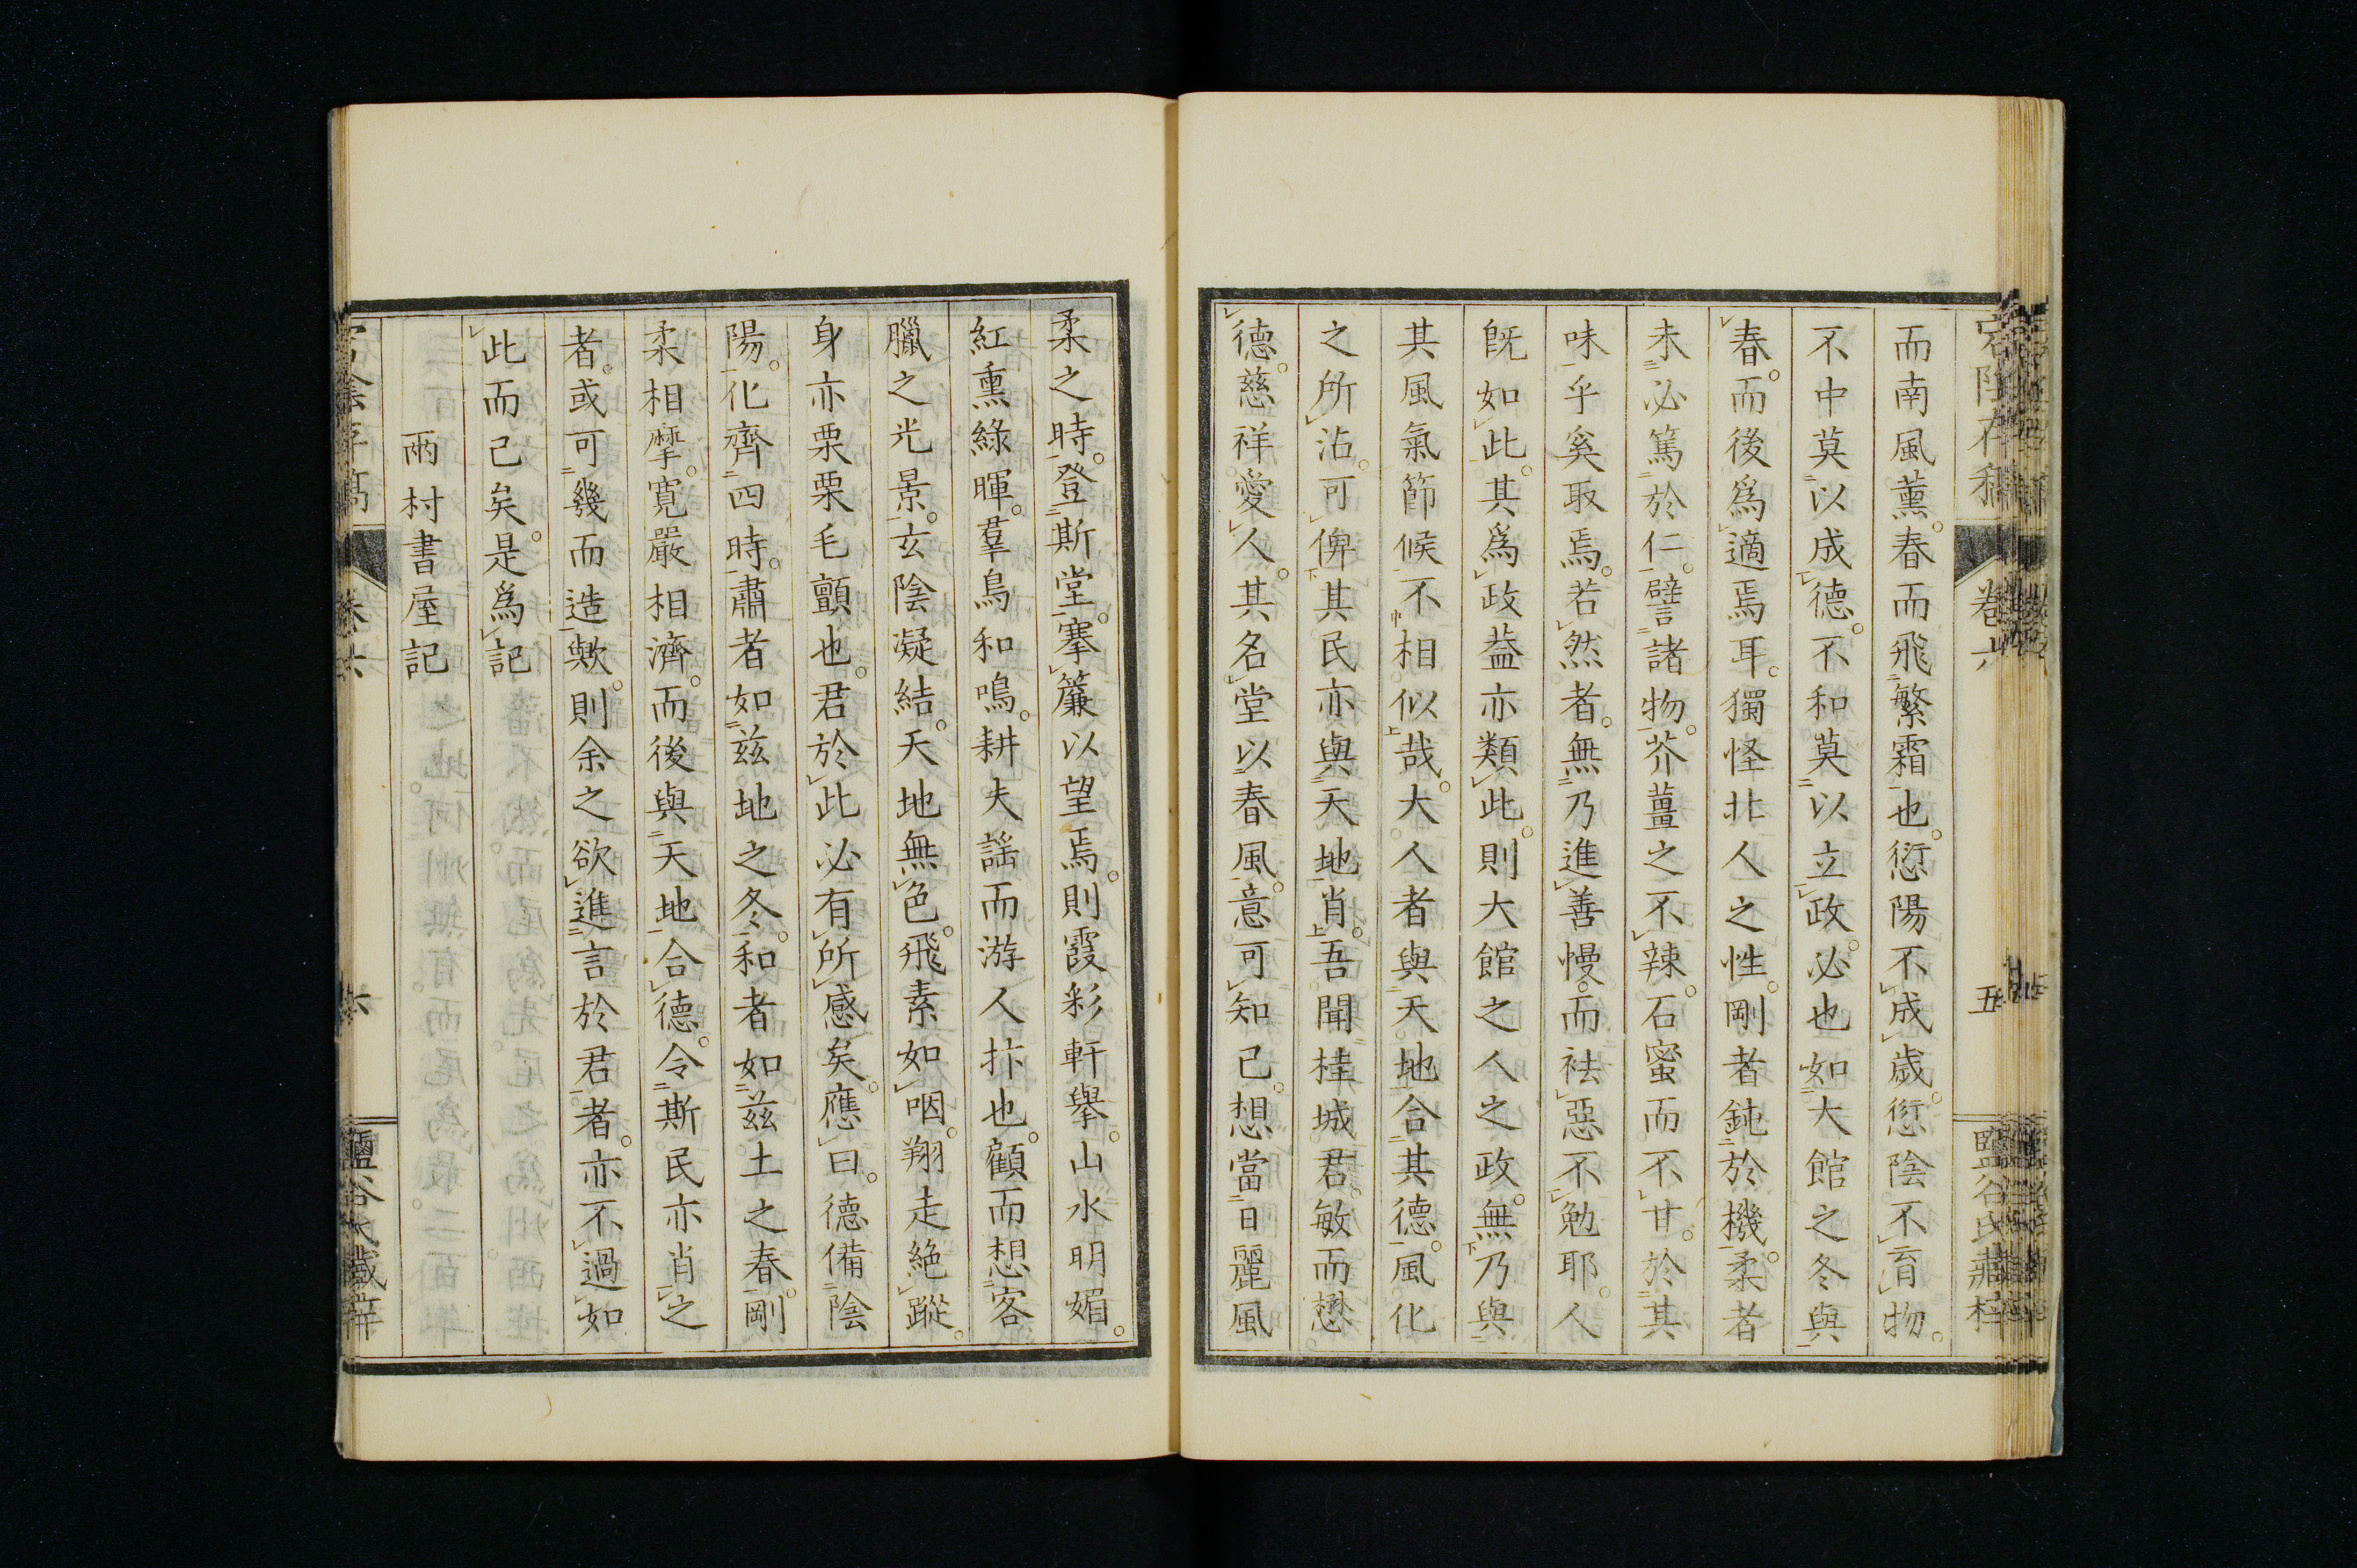 而南風薰。春而飛繁霜也。愆陽不成歲。愆陰不育物。
不中莫以成德。不和莫以立政。必也如大館之冬與
春。而後爲適焉耳。獨怪北人之性。剛者鈍於機。柔者
未必篤於仁。譬諸物。芥薑之不辣。石蜜而不甘。於其
味乎奚取焉。若然者。無乃進善慢。而袪惡不勉耶。人
既如此。其爲政益亦類此。則大館之人之政。無乃與
其風氣節候不相似哉。大人者與天地合其德。風化
之所沾。可俾其民亦與天地肖。吾聞桂城君。敏而懋
德。慈祥愛人。其名堂以春風。意可知已。想當日麗風
柔之時。登斯堂。搴簾以望焉。則霞彩軒擧。山水明媚。
紅熏綠暉。羣鳥和鳴。耕夫謠而游人抃也。顧而想客
臘之光景。玄陰凝結。天地無色。飛素如咽。翔走絕蹤。
身亦栗栗毛顫也。君於此必有所感矣。應曰。德備陰
陽。化齊四時。肅者如茲地之冬。和者如茲土之春。剛
柔相摩。寬嚴相濟。而後與天地合德。令斯民亦肖之
者。或可幾而造歟。則余之欲進言於君者。亦不過如
此而已矣。是爲記
雨村書屋記
卷六
五
鹽谷氏藏梓
卷六
六
鹽谷氏藏梓